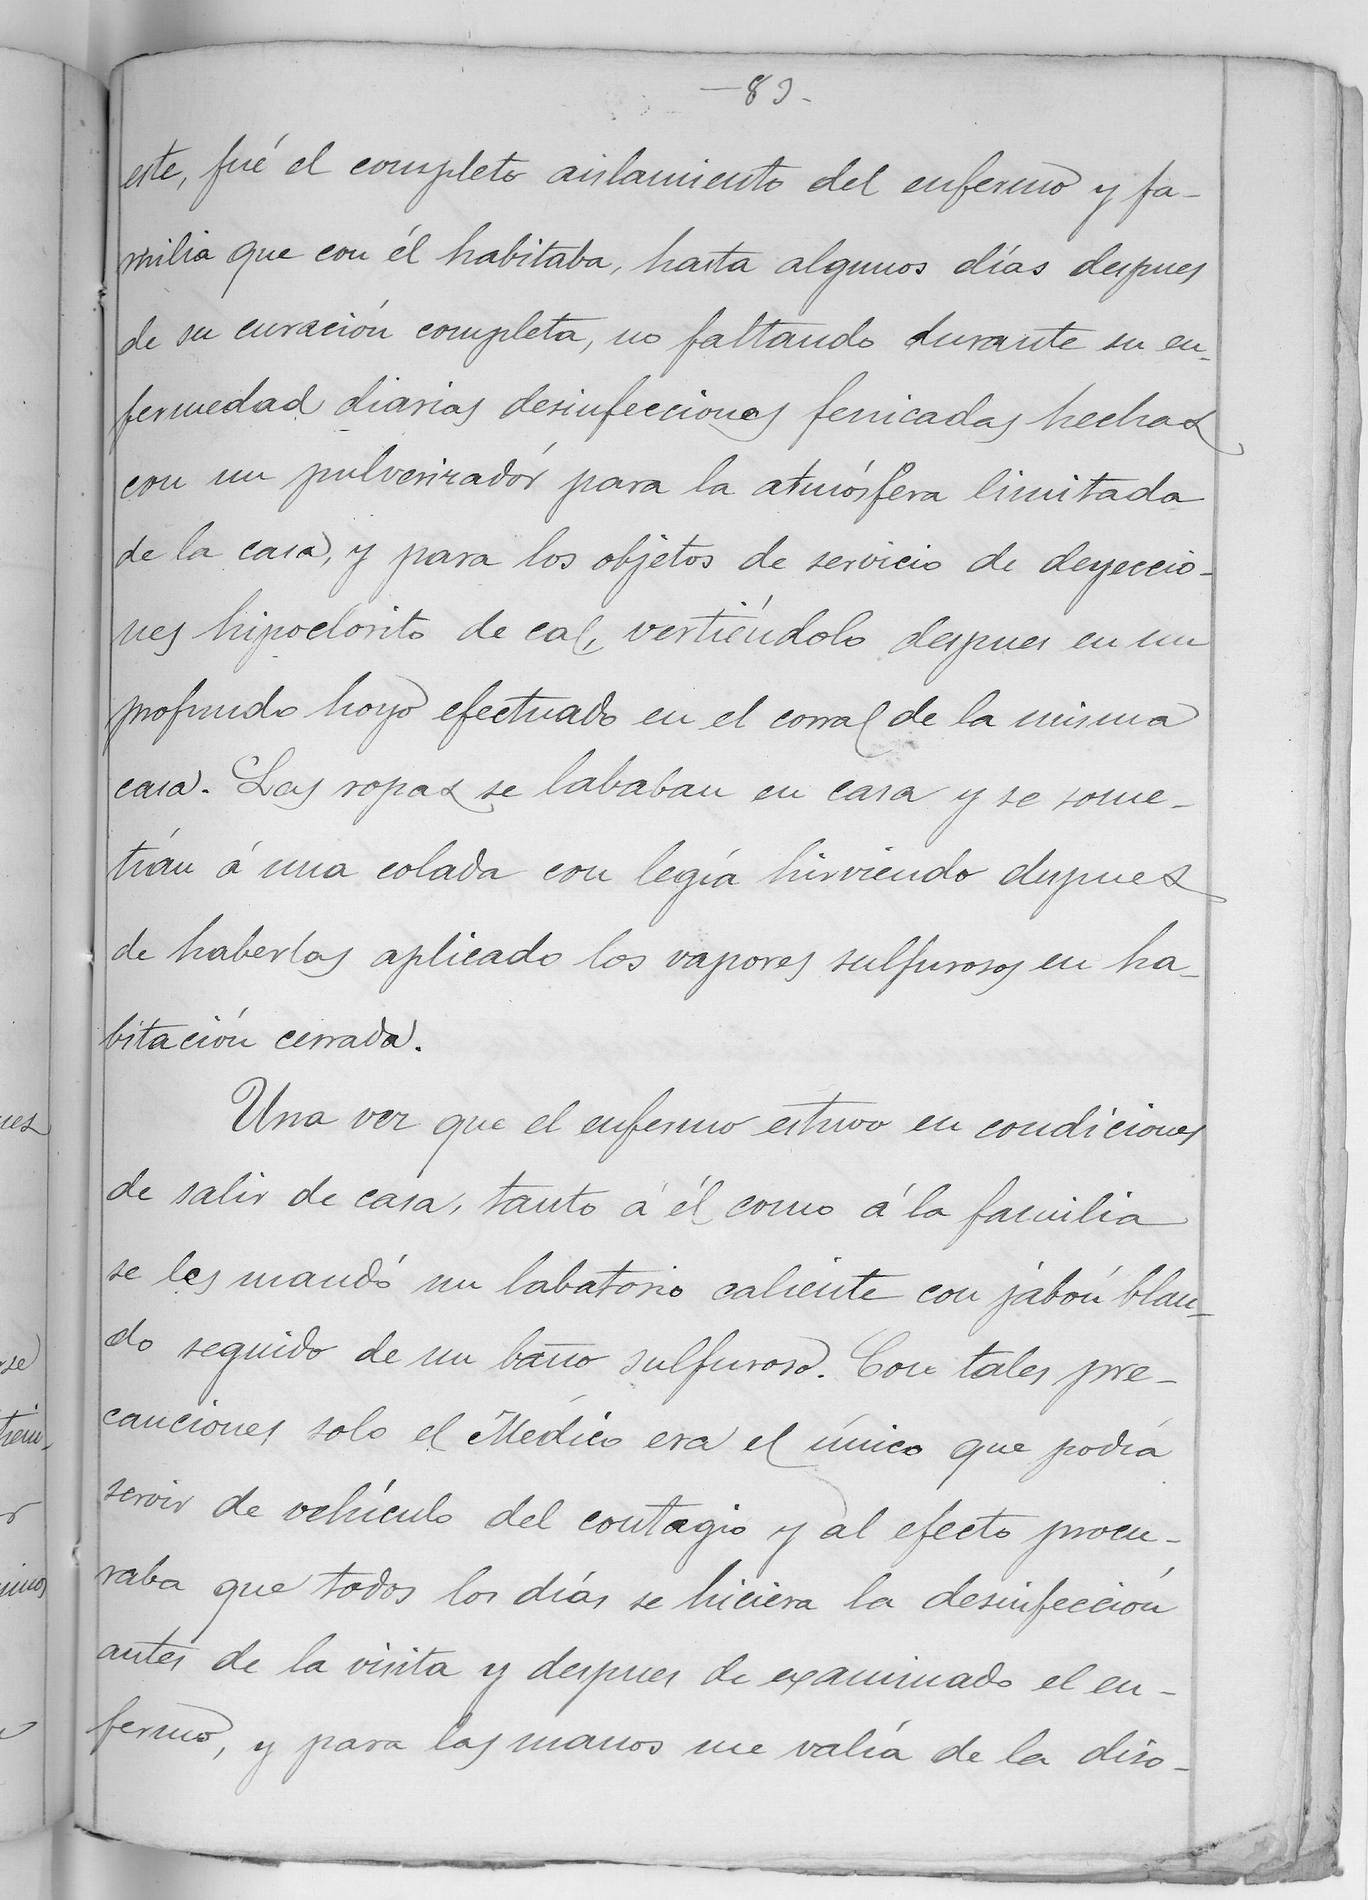 —89-
este, fué el completo aislamiento del enfermo y fa-
milia que con él habitaba, hasta algunos días despues
de su curación completa, no faltando durante su en-
fermedad diarias desinfecciones fenicadas hechas
con un pulverizadór para la atmósfera limitada
de la casa, y para los objetos de servicio de deyeccio-
nes hipoclorito de cal, vertiéndolo despues en un
profundo hoyo efectuado en el corral de la misma
casa. Las ropas se lababan en casa y se some-
tían á una colada con legía hirviendo despues
de haberlas aplicado los vapores sulfurosos en ha-
bitación cerrada.
Una vez que el enfermo estuvo en condiciones
de salir de casa, tanto á él como á la familia
se les mandó un labatorio caliente con jabón blan-
do seguido de un baño sulfuroso. Con tales pre-
cauciones solo el Médico era el único que podía
servir de vehículo del contagio y al efecto procu-
raba que todos los días se hiciera la desinfección
antes de la visita y despues de examinado el en-
fermo, y para las manos me valía de la diso-
nes
se
tiem-